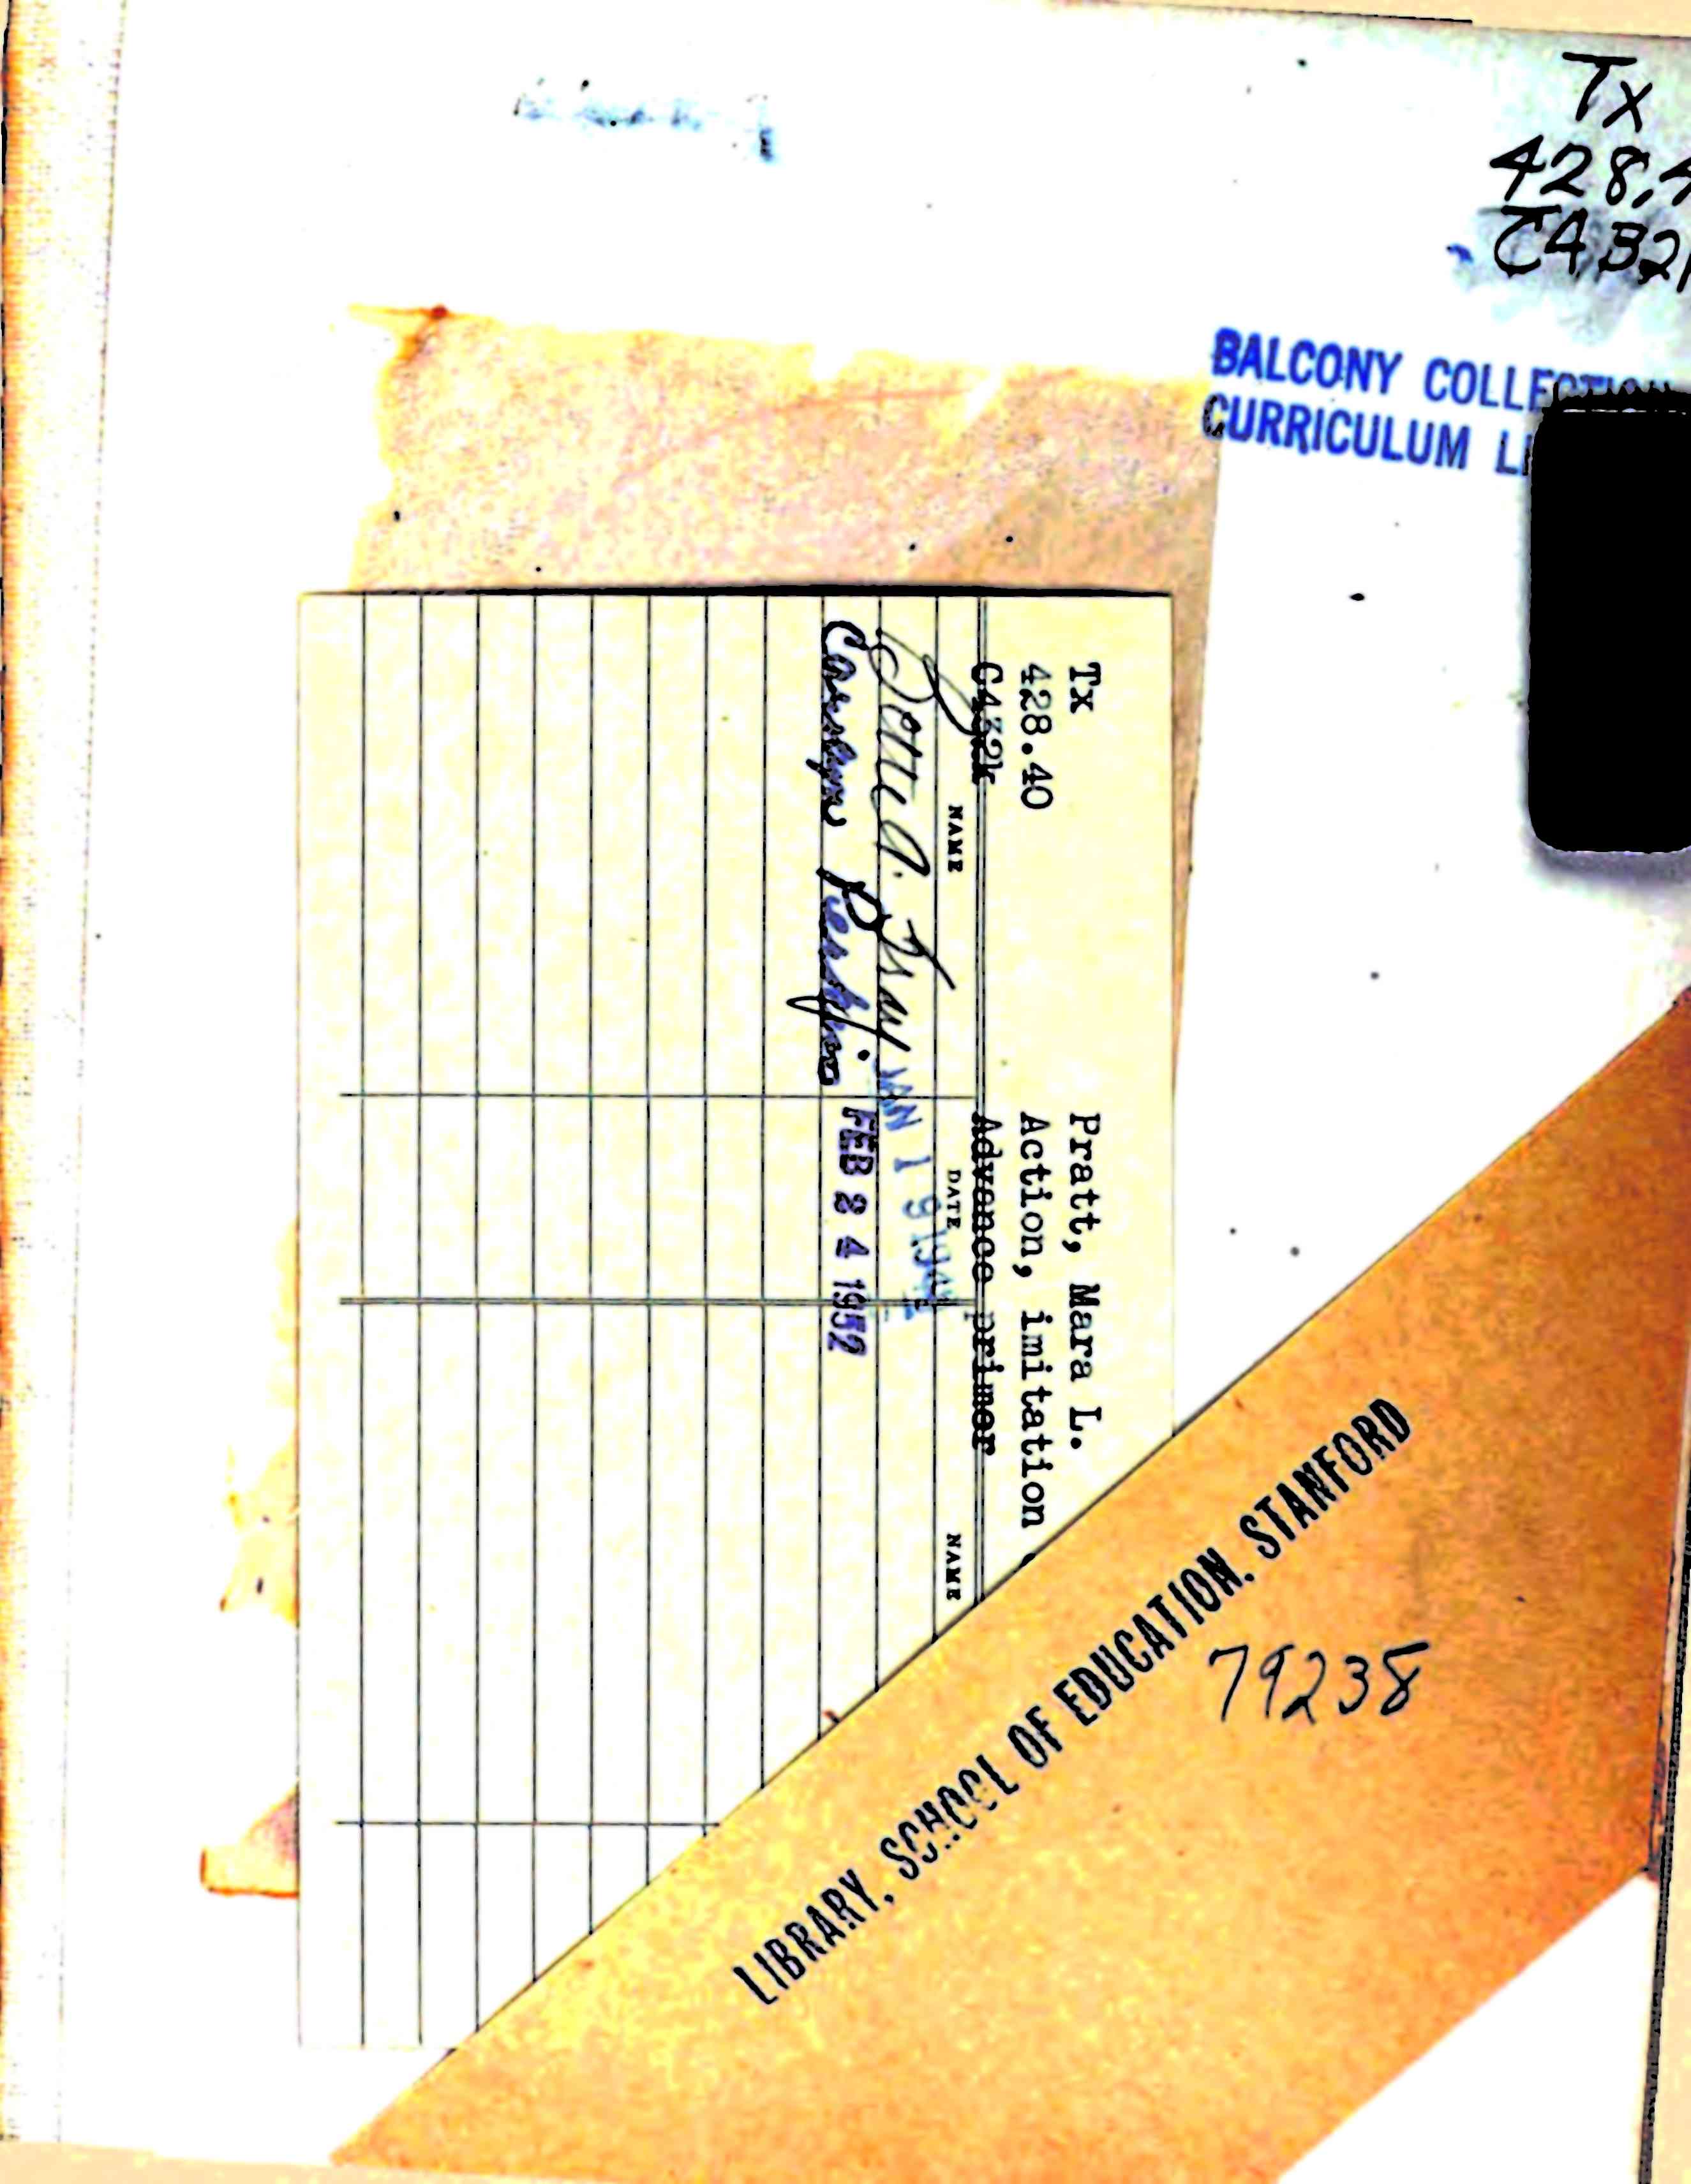 Tx
428.4
C432
BALCONY COLLECTION
CURRICULUM LI
Tx
428.40
C432k
Pratt, Mara L.
Action, imitation
Advance primer
NAME DATE NAME
JAN 1 9
Carolyn Pershing FEB 2 4 1952
LIBRARY, SCHOOL OF EDUCATION, STANFORD
79238